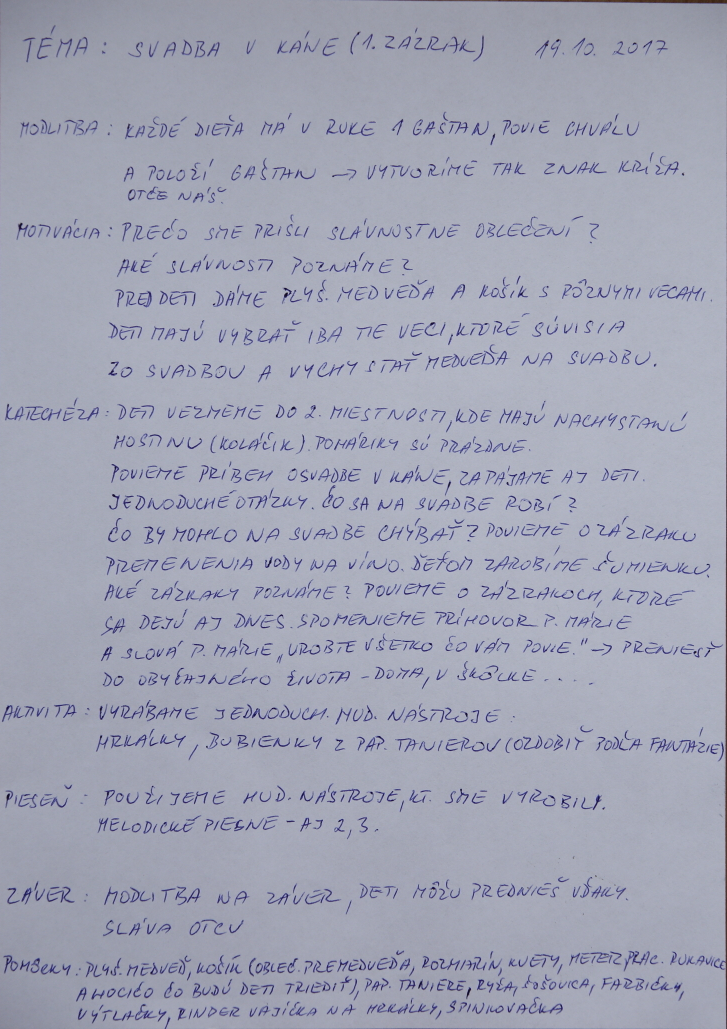 TÉMA: SVADBA V KÁNE (1. ZÁZRAK) 19.10.2017
MODLITBA: KAŽDÉ DIEŤA MÁ V RUKE 1 GAŠTAN, POVIE CHVÁLU
A POLOŽÍ GAŠTAN → VYTVORÍME TAK ZNAK KRÍŽA.
OTČE NÁŠ.
MOTIVÁCIA: PREČO SME PRIŠLI SLÁVNOSTNE OBLEČENÍ?
AKÉ SLÁVNOSTI POZNÁME?
PRED DETI DÁME PLYŠ. MEDVEĎA A KOŠÍK S RÔZNYMI VECAMI.
DETI MAJÚ VYBRAŤ IBA TIE VECI, KTORÉ SÚVISIA
ZO SVADBOU A VYCHYSTAŤ MEDVEĎA NA SVADBU.
KATECHÉZA: DETI VEZMEME DO 2. MIESTNOSTI, KDE MAJÚ NACHYSTANÚ
HOSTINU (KOLÁČIK). POHÁRIKY SÚ PRÁZDNE.
POVIEME PRÍBEH O SVADBE V KÁNE, ZAPÁJAME AJ DETI.
JEDNODUCHÉ OTÁZKY. ČO SA NA SVADBE ROBÍ?
ČO BY MOHLO NA SVADBE CHÝBAŤ? POVIEME O ZÁZRAKU
PREMENENIA VODY NA VÍNO. DEŤOM ZAROBÍME ŠUMIENKU.
AKÉ ZÁZRAKY POZNÁME? POVIEME O ZÁZRAKOCH, KTORÉ
SA DEJÚ AJ DNES. SPOMENIEME PRÍHOVOR P. MÁRIE
A SLOVÁ P. MÁRIE „UROBTE VŠETKO ČO VÁM POVIE." → PRENIESŤ
DO OBYČAJNÉHO ŽIVOTA - DOMA, V ŠKÔLKE....
AKTIVITA: VYRÁBAME JEDNODUCH. HUD. NÁSTROJE:
HRKÁLKY, BUBIENKY Z PAP. TANIEROV (OZDOBIŤ PODĽA FANTÁZIE)
PIESEŇ: POUŽIJEME HUD. NÁSTROJE, KT. SME VYROBILI.
MELODICKÉ PIESNE - AJ 2, 3.
ZÁVER: MODLITBA NA ZÁVER, DETI MÔŽU PREDNIEŠ VĎAKY.
SLÁVA OTCU
POMÔCKY: PLYŠ. MEDVEĎ, KOŠÍK (OBLEČ. PRE MEDVEĎA, ROZMARÍN, KVETY, METER, PRAC. RUKAVICE
A HOCIČO ČO BUDÚ DETI TRIEDIŤ), PAP. TANIERE, RYŽA, ŠOŠOVICA, FARBIČKY,
VÝTLAČKY, KINDER VAJÍČKA NA HRKÁLKY, SPINKOVAČKA